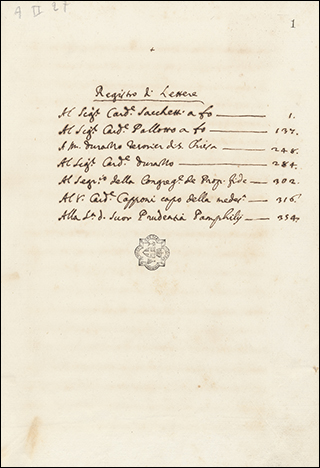 A II 27
1
Registro di Lettere
Al Sigr Cardl Sacchetti a fo 1.
Al Sigr Cardl Pallotto a fo 137.
A m. Durazzo di S. Chiesa 248.
Al Sigr Cardl Durazzo 284.
Al Segrio della Congregne de Prop. fide 302.
Al Sr Cardl Capponi capo della medes 316.
Alla Sra d. Suor Prudenzia Pamphilij 354.